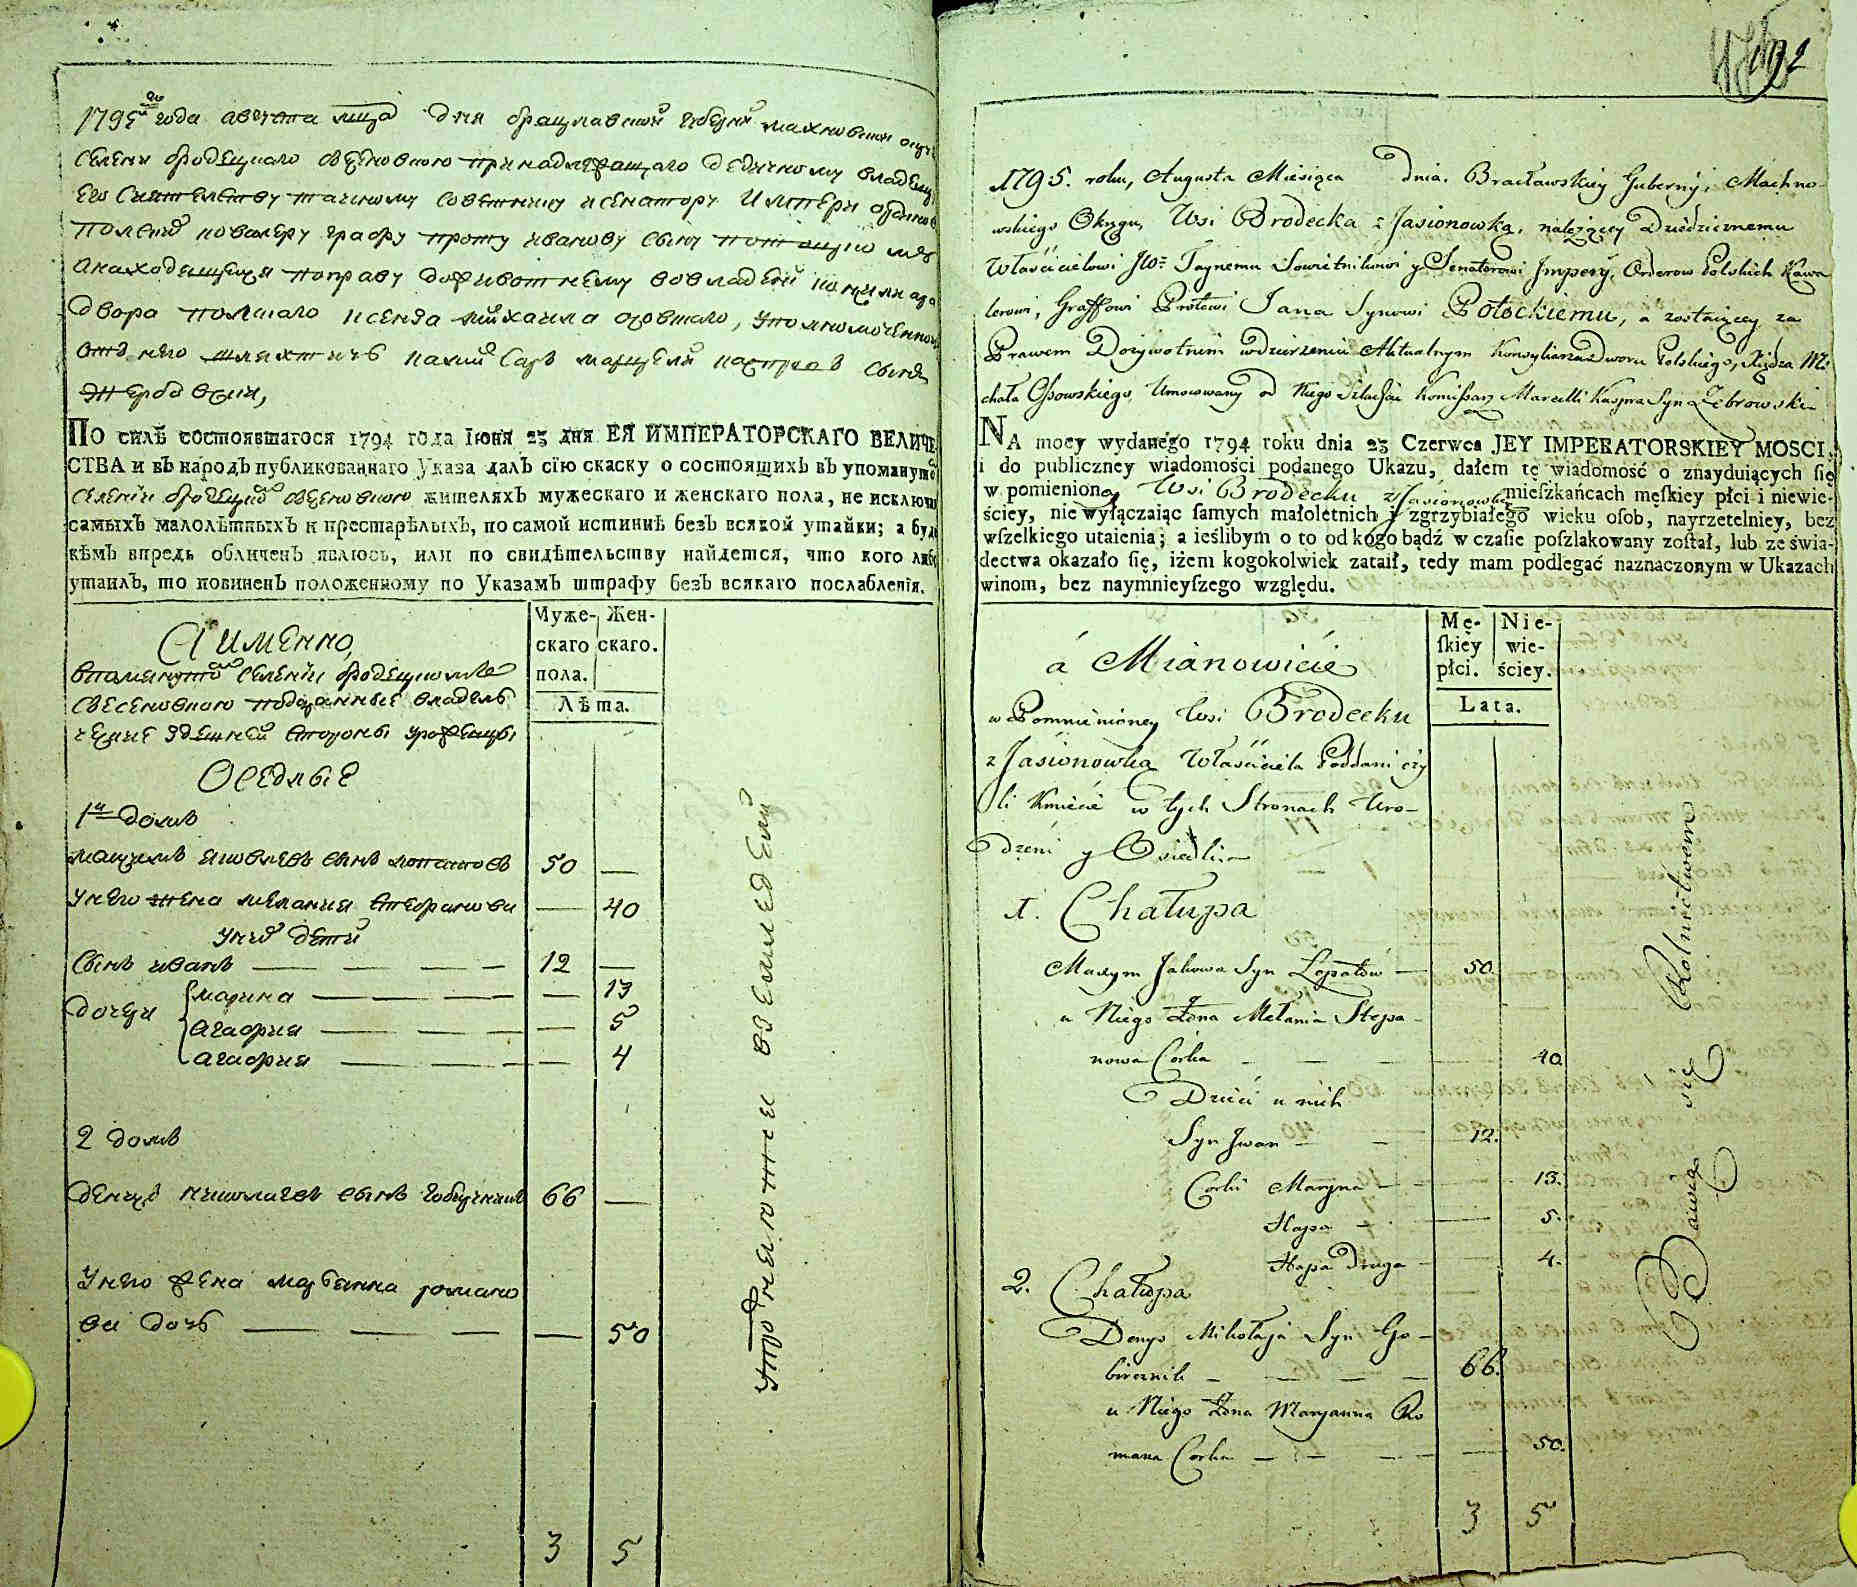 1795го года августа мца дня брацлавской губернии махновской округи
селения бродецкаго
его Сиятельству тайному советнику и сенатору Империи орденов
польских кавалеру графу проту иванову сыну потоцкому
анаходящагося по праву доживотнему во владении
двора польскаго ксендза михаила осовскаго, уполномоченной
отъ него шляхтичъ марцели каспровъ сынъ
жебровский,
ПО силѣ состоявшагося 1794 года Iюня 23 дня ЕЯ ИМПЕРАТОРСКАГО ВЕЛИЧЕ-
СТВА и въ народъ публикованнаго Указа далъ сїю скаску о состоящихъ въ упомянутомъ
селении жителяхъ мужескаго и женскаго пола, не исключая
самыхъ малолѣтныхъ и престарѣлыхъ, по самой истиннѣ безъ всякой утайки; а буде
кѣмъ впредь обличенъ явлюсь, или по свидѣтельству найдется, что кого либо
утаилъ, то повиненъ положенному по Указамъ штрафу безъ всякаго послабленїя.
Муже-
скаго
пола.
Жен-
скаго.
Лѣта.
А именно,
впомянутомъ селении
подданные владель
ческие здешней стороны уроженцы
Оседлые
1й домъ
максимъ яковлевъ сынъ лопатовъ 50 —
Унего жена мелания степанова — 40
Унихъ дети
Сынъ иванъ — — — — 12 —
дочери
марина — — — — 13
агафия — — — — 5
агафия — — — — 4
2 домъ
денисъ николаевъ сынъ 66 —
Унего жена марьянна романо
ва дочь — — — — 50
3 5
упражняются в земледелии
192
1795. roku, Augusta Miesiąca dnia. Bracławskiey Guberny, Machno-
wskiego Okręgu, Wsi Brodecka z Jasionowką, należącey Dziedzicznemu
Właścicielowi JW: Taynemu Sowietnikowi y Senatorowi Impery, Orderow Polskich Kawa
lerowi, Graffowi Protowi Jana Synowi Potockiemu, a zostaiącey za
Prawem Dożywotnim w dzierżeniu Aktualnym Konsyliarza Dworu Polskiego, Xiędza Mi
chała Ossowskiego, Umocowany od Niego Szlachcic Komissarz Marcelli Kaspra Syn Zebrowski
NA mocy wydanego 1794 roku dnia 23 Czerwca JEY IMPERATORSKIEY MOSCI,
i do publiczney wiadomości podanego Ukazu, dałem tę wiadomość o znayduiących się
w pomienioney Wsi Brodecku z Jasionowką mieſzkańcach męſkiey płci i niewie-
ściey, nie wyłączaiąc ſamych małoletnich y zgrzybiałego wieku oſob, nayrzetelniey, bez
wſzelkiego utaienia; a ieślibym o to od kogo bądź w czaſie poſzlakowany zoſtał, lub ze świa-
dectwa okazało ſię, iżem kogokolwiek zataił, tedy mam podlegać naznaczonym w Ukazach
winom, bez naymnieyſzego względu.
Mę-
ſkiey
płci.
Nie-
wie-
ściey.
Lata.
á Mianowicie
w Pomienioney Wsi Brodecku
z Jasionowką Właściciela Poddani czy
li Kmiecie w tych Stronach Uro-
dzeni y Osiedli.
1. Chałupa
Maxym Jakowa Syn Łopatów — 50.
u Niego Zona Mełania Stepa-
nowa Corka — — — 40.
Dzieci u nich
Syn Jwan — — 12.
Corki Maryna — — 13.
Hapa — — 5.
Hapa Druga — — 4.
2. Chałupa
Denys Mikołaja Syn Go-
bicznik — — — — 66.
u Niego Zona Maryanna Ro
mana Corka — — — — 50.
3 5
Bawią się Rolnictwem